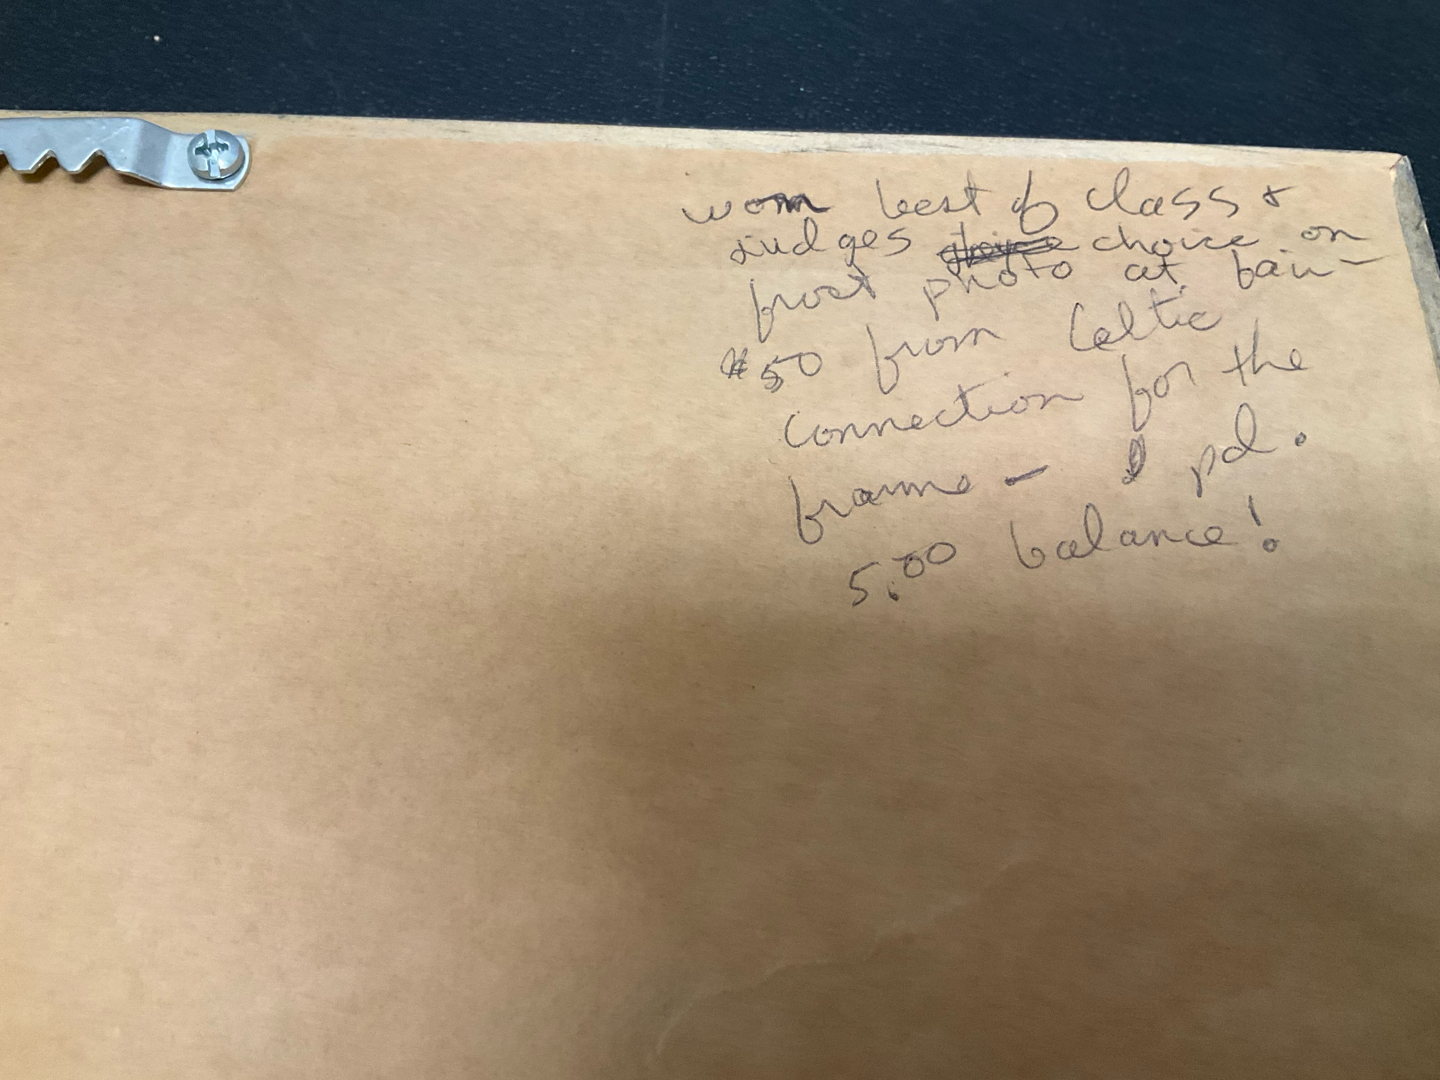 won best of class &
judges choice on
frost photo at fair –
$50 from Celtic
connection for the
frame – I pd.
5.00 balance!